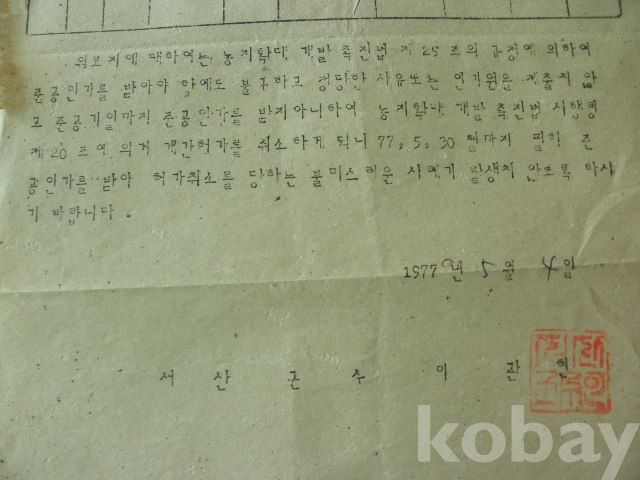 위토지에 대하여는 농지확대 개발 촉진법 제 29 조의 규정에 의하여
준공인가를 받아야 함에도 불구하고 정당한 사유또는 연기원을 제출치 않
고 준공기일까지 준공인가를 받지아니하여 농지확대 개발 촉진법 시행령
제 20 조에 의거 개간허가를 취소하게 되니 77. 5. 30 일까지 필히 준
공인가를 받아 허가취소를 당하는 불미스러운 사례가 발생치 안토록 하시
기 바랍니다.
1977 년 5 월 4 일
서 산 군 수 이 관 현
kobay